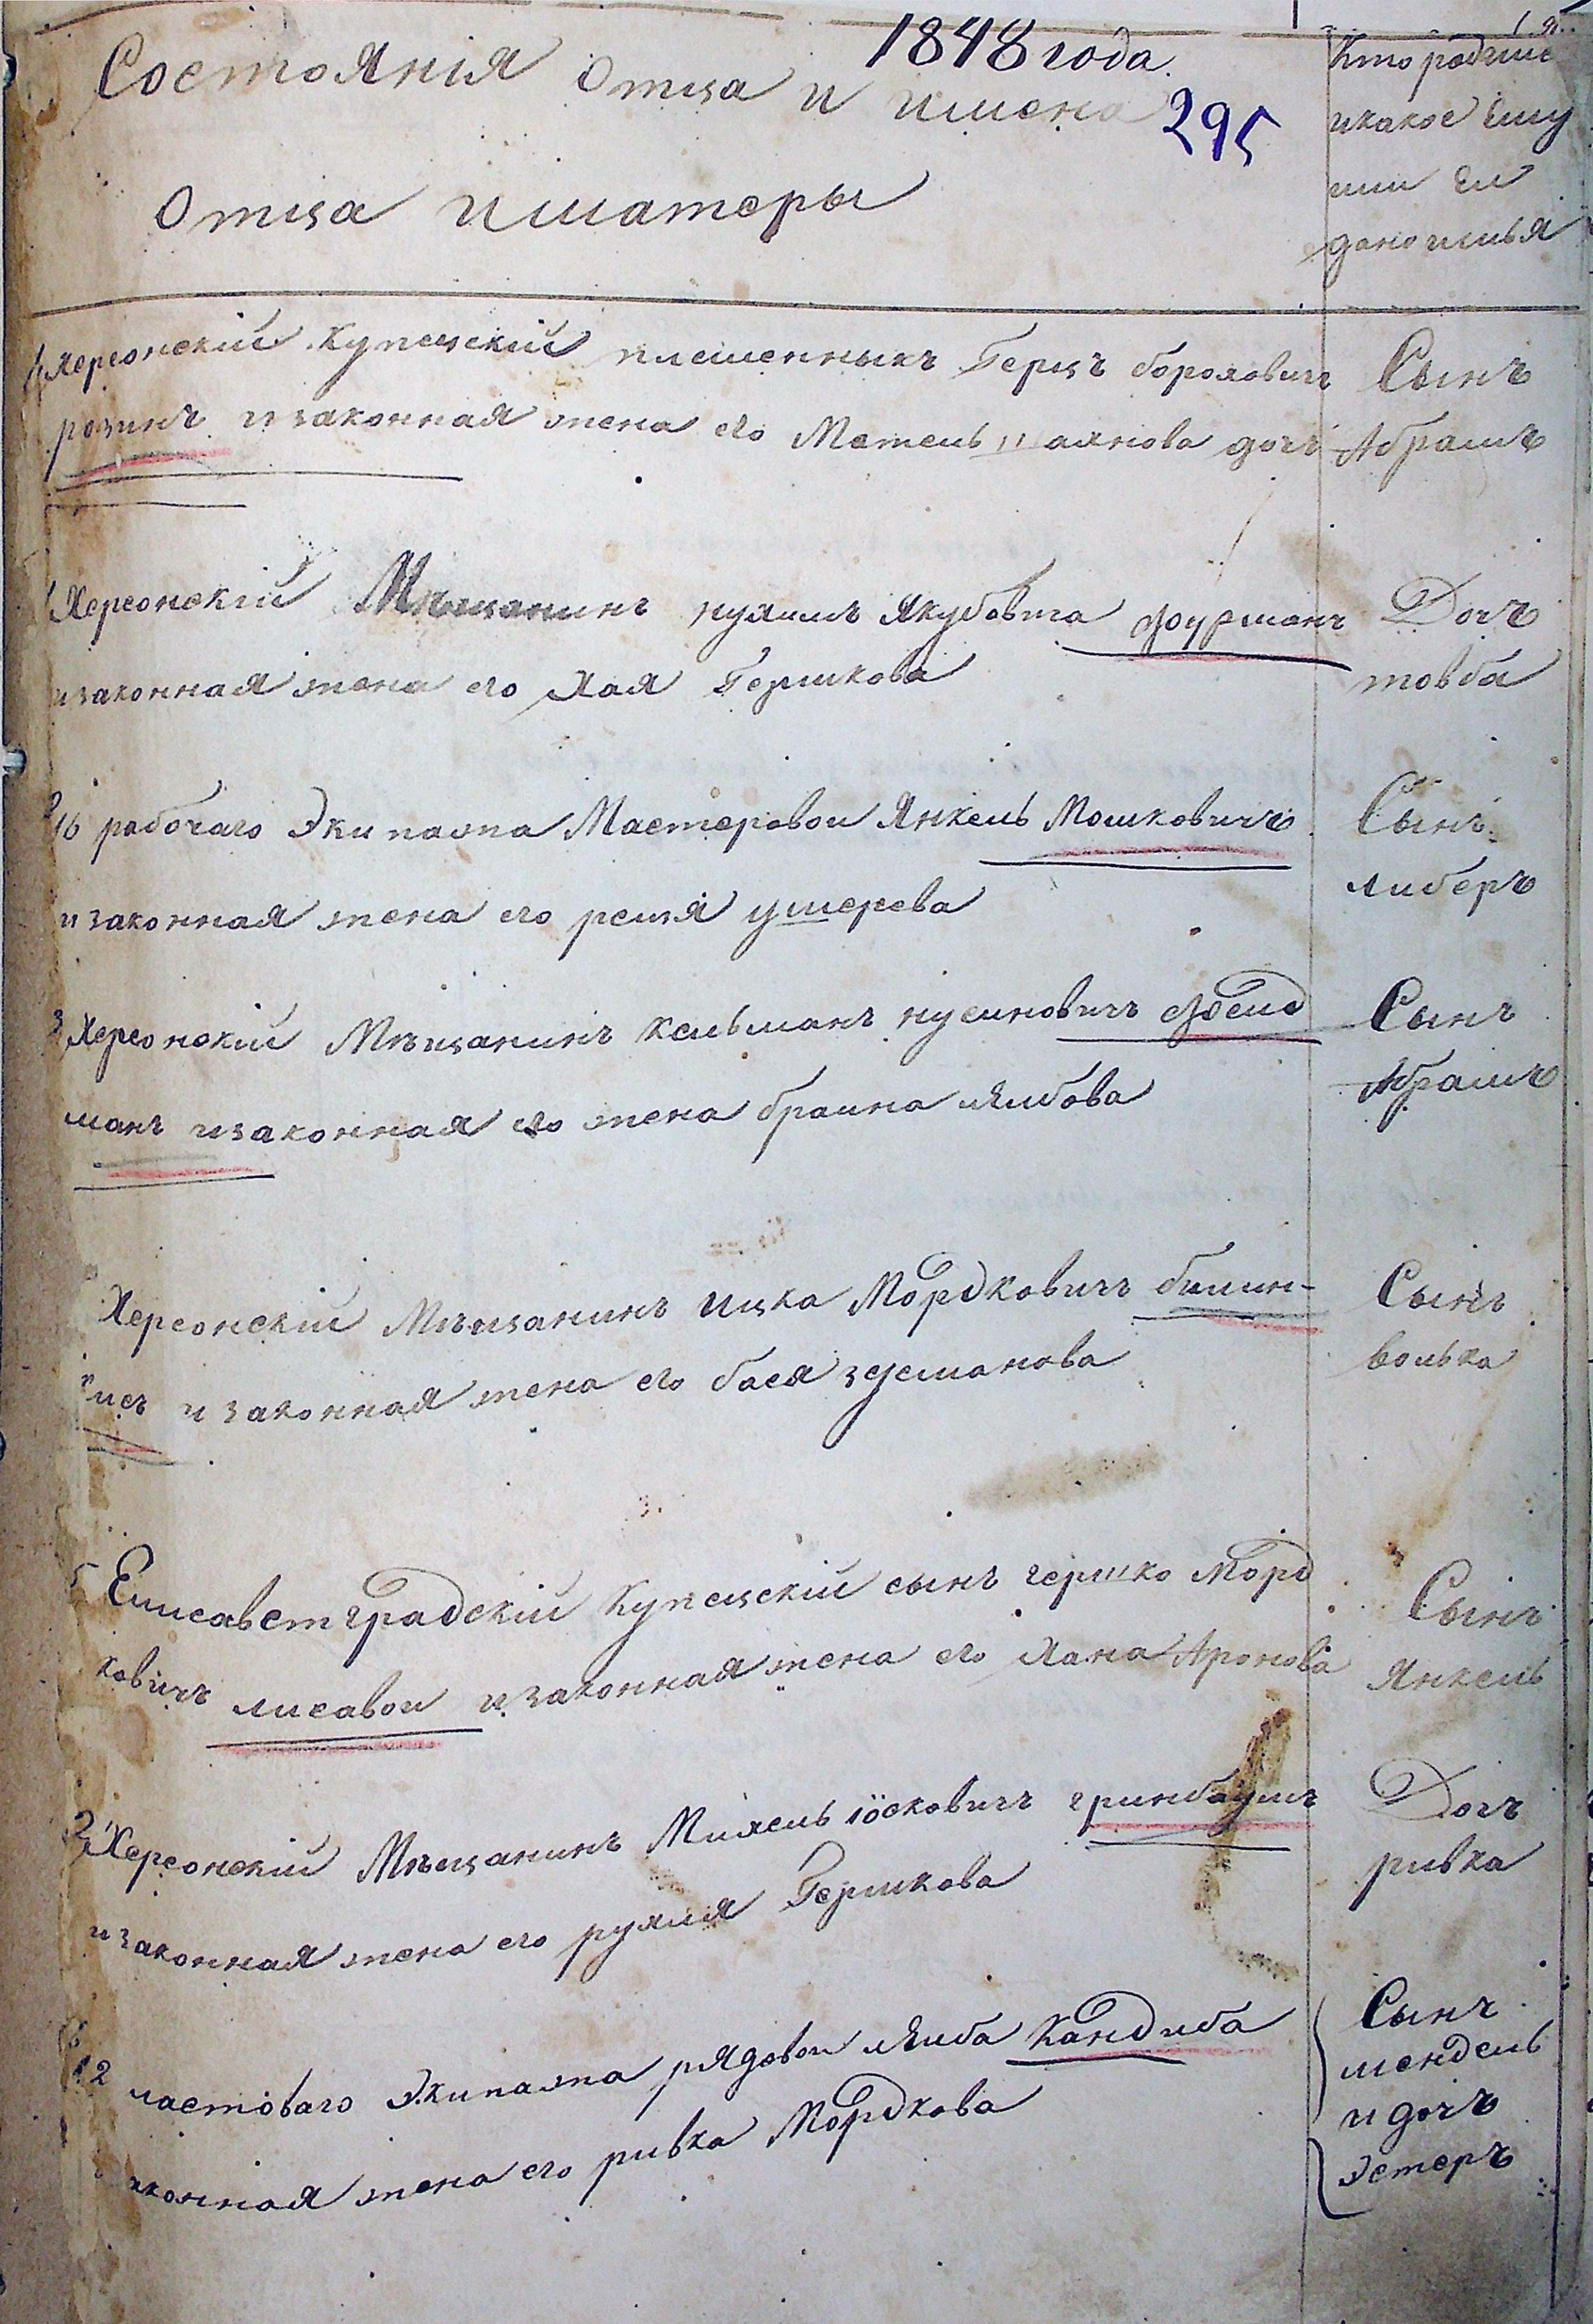 1848 года.
295
Состоянія Отца и имена
Отца и матеры
Кто родился
и какое Ему
или Ей
дано имья
Херсонскій Купецскій племенныкъ Герцъ бороховичъ
розинъ и законная жена его Метель хаимова дочъ
Сынъ
Абрамъ
Херсонскій Мѣщанинъ нухимъ Якубовта фурманъ
и законная жена его Хая Гершкова
Дочъ
товба
16 рабочаго Экипажа Мастеровои Янкель Мошковичъ
и законная жена его рейзя ушерева
Сынъ
либеръ
3 Херсонскій Мѣщанинъ кельманъ нусиновичъ фельд
манъ и законная его жена браина лейбова
Сынъ
Абрамъ
Херсонскій Мѣщанинъ ицка Мордковичъ билин-
кисъ и законная жена его бася зусманова
Сынъ
волька
5 Елисаветградскій Купецскій сынъ гершко Морд
ковичъ лисавои и законная жена его хана Аронова
Сынъ
Янкель
2 Херсонскій Мѣщанинъ Михель іосковичъ гринбаумъ
и законная жена его рухля Гершкова
Дочъ
ривка
12 ластоваго Экипажа рядовои лейба Кандиба
законная жена его ривка Мордкова
Сынъ
мендель
и дочъ
Эстеръ